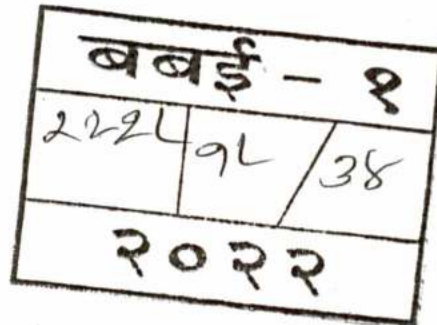 बबई - १
२२२८ १८ / ३४
२०२२